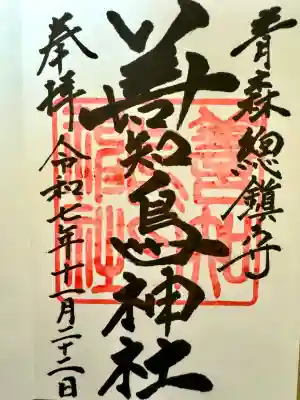 青森總鎮守
善知鳥神社
奉拝
令和七年十一月二十二日
善知鳥神社